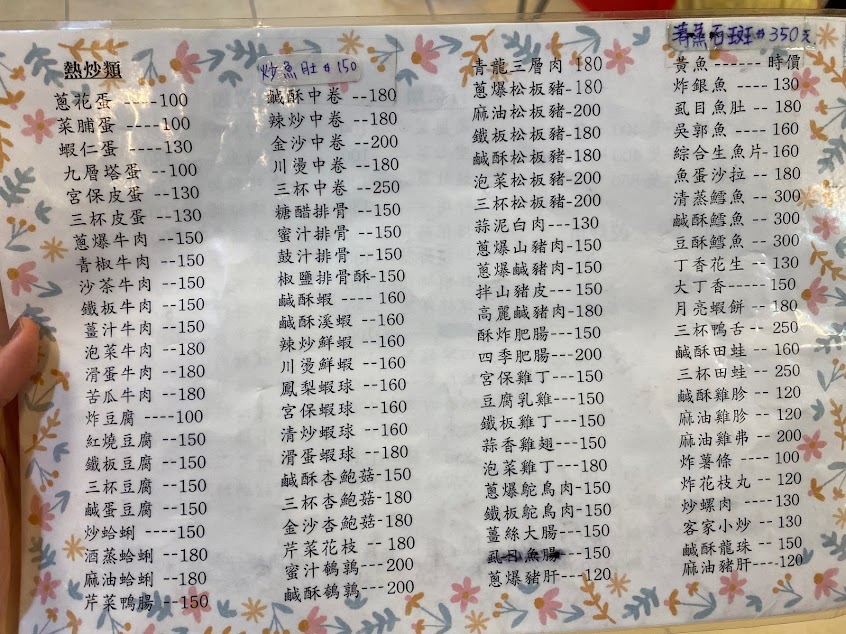 熱炒類
蔥花蛋 ----100
菜脯蛋 ----100
蝦仁蛋 ----130
九層塔蛋 --100
宮保皮蛋 --130
三杯皮蛋 --130
蔥爆牛肉 --150
青椒牛肉 --150
沙茶牛肉 --150
鐵板牛肉 --150
薑汁牛肉 --150
泡菜牛肉 --180
滑蛋牛肉 --180
苦瓜牛肉 --180
炸豆腐 ----100
紅燒豆腐 --150
鐵板豆腐 --150
三杯豆腐 --150
鹹蛋豆腐 --150
炒蛤蜊 ----150
酒蒸蛤蜊 --180
麻油蛤蜊 --180
芹菜鴨腸 --150
炒魚肚 #150
鹹酥中卷 --180
辣炒中卷 --180
金沙中卷 --200
川燙中卷 --180
三杯中卷 --250
糖醋排骨 --150
蜜汁排骨 --150
鼓汁排骨 --150
椒鹽排骨酥-150
鹹酥蝦 ---- 160
鹹酥溪蝦 --160
辣炒鮮蝦 --160
川燙鮮蝦 --160
鳳梨蝦球 --160
宮保蝦球 --160
清炒蝦球 --160
滑蛋蝦球 --180
鹹酥杏鮑菇-150
三杯杏鮑菇-180
金沙杏鮑菇-180
芹菜花枝 -- 180
蜜汁鵪鶉---200
鹹酥鵪鶉---200
青龍三層肉 180
蔥爆松板豬-180
麻油松板豬-200
鐵板松板豬-180
鹹酥松板豬-180
泡菜松板豬-200
三杯松板豬-200
蒜泥白肉---130
蔥爆山豬肉-150
蔥爆鹹豬肉-150
拌山豬皮---150
高麗鹹豬肉-180
酥炸肥腸---150
四季肥腸---200
宮保雞丁---150
豆腐乳雞---150
鐵板雞丁---150
蒜香雞翅---150
泡菜雞丁---180
蔥爆鴕鳥肉-150
鐵板鴕鳥肉-150
薑絲大腸---150
虱目魚腸---150
蔥爆豬肝---120
清蒸石斑#350元
黃魚------ 時價
炸銀魚 ---- 130
虱目魚肚 -- 180
吳郭魚 ---- 160
綜合生魚片-160
魚蛋沙拉 -- 180
清蒸鱈魚 -- 300
鹹酥鱈魚 -- 300
豆酥鱈魚 -- 300
丁香花生 -- 130
大丁香-----150
月亮蝦餅 -- 180
三杯鴨舌 -- 250
鹹酥田蛙 -- 160
三杯田蛙 -- 250
鹹酥雞胗 -- 120
麻油雞胗 -- 120
麻油雞弗 -- 200
炸薯條 ---- 100
炸花枝丸 -- 120
炒螺肉 ---- 130
客家小炒 -- 130
鹹酥龍珠 -- 150
麻油豬肝----120